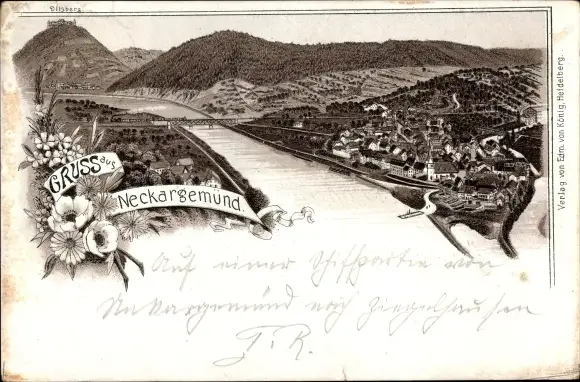 Dilsberg.
GRUSS aus
Neckargemünd.
Verlag von Edm. von König, Heidelberg.
Auf einer Schiffpartie von
Neckargemünd nach Ziegelhausen
T. R.